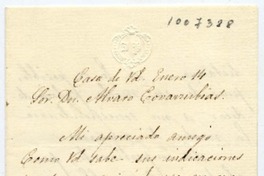 1007388
Casa de Vd. Enero 14
Sor. Dn. Alvaro Covarrubias.
Mi apreciado amigo
Como Vd sabe sus indicaciones